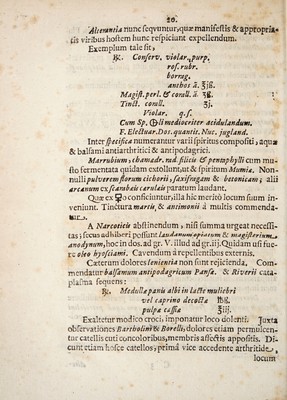 20.
Alterantia nunc sequuntur, quæ manifestis & appropria-
tis viribus hostem hunc respiciant expellendum.
Exemplum tale sit,
℞. Conserv. violar. purp.
ros. rubr.
borrag.
anthos ā. ℥iß.
Magist. perl. & corall. ā ʒß.
Tinct. corall. ʒj.
Violar. q. s.
Cum Sp. 🜨li mediocriter acidulandum.
F. Electuar. Dos. quantit. Nuc. jugland.
Inter specifica numerantur varii spiritus compositi, aquæ
& balsami antiarthritici & antipodagrici.
Marrubium, chamadr. rad. filicis & pentaphylli cum mu-
sto fermentata quidam extollunt, ut & spiritum Mumiæ. Non-
nulli pulverem florum cichorii, saxifragam & botonicam, alii
arcanum ex scambais cæruleis paratum laudant.
Quæ ex conficiuntur, illa hic meritò locum suum in-
veniunt. Tinctura martis, & antimonii à multis commenda-
tur.
A Narcoticis abstinendum, nisi summa urgeat necessi-
tas; secus adhiberi possunt laudanum opiatum & magisterium
anodynum, hoc in dos. ad gr. V. illud ad gr. iij. Quidam usi fue-
re oleo hyosciami. Cavendum à repellentibus externis.
Cæterum dolores lenientia non sunt rejicienda. Com-
mendatur balsamum antipodagricum Pansæ. & Riverii cata-
plasma sequens:
℞. Medulla panis albi in lacte muliebri
vel caprino decoctæ
pulpæ cassiæ ℥iij.
Exaltetur modico croci, imponatur loco dolenti. Juxta
observationes Bartholini & Borelli, dolores etiam permulcen-
tur catellis cuti concoloribus, membris affectis appositis. Di-
cunt etiam hosce catellos, prima vice accedente arthritide,
locum